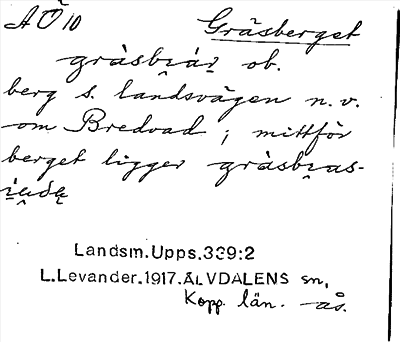 AÖ10 Gräsberget
gràsbɪ̯áɾ ob.
berg s. landsvägen n.v.
om Bredvad; mittför
berget ligger gràsbɪ̯as-
Landsm.Upps.339:2
L.Levander.1917.ÄLVDALENS sn,
Kopp. län. -ås.